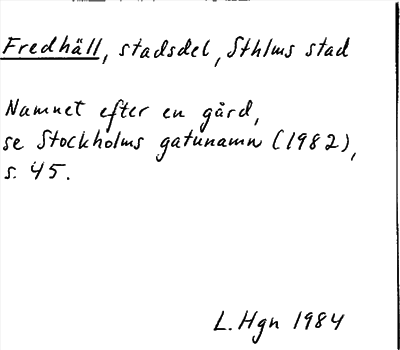 Fredhäll, stadsdel, Sthlms stad
Namnet efter en gård,
se Stockholms gatunamn (1982),
s. 45.
L. Hgn 1984